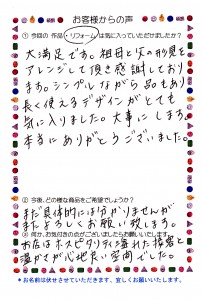 お客様からの声
① 今回の 作品・リフォーム は気に入っていただけましたか?
大満足です。祖母と父の形見を
アレンジして頂き感謝しており
ます。シンプルながら品もあり
長く使えるデザインがとても
気に入りました。大事にします。
本当にありがとうございました。
② 今後、どの様な商品をご希望でしょうか?
まだ具体的には分かりませんが
またよろしくお願い致します。
③ 何か、お気付きの点がございましたらお願いいたします。
お店はホスピタリティ溢れた接客と
温かさが心地良い空間でした。
★お名前は伏せさせていただきます、宜しくお願いいたします。